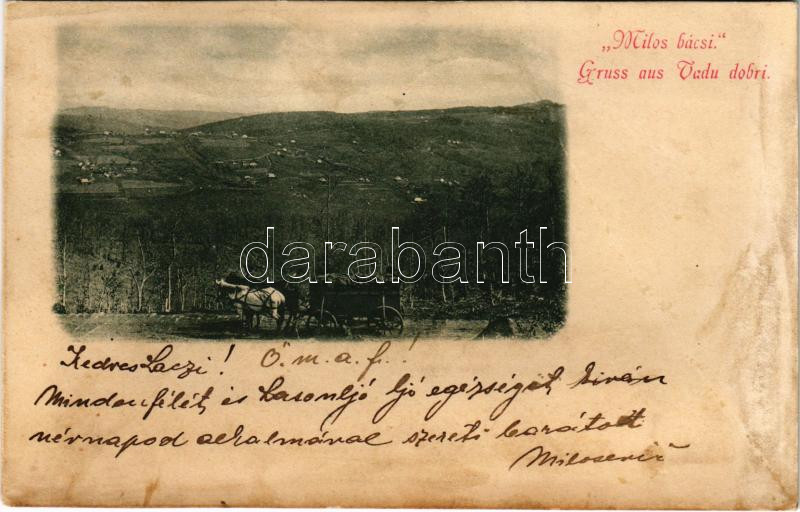 „Milos bácsi.“
Gruss aus Vadu dobri.
darabanth
Kedves Laczi! Ö. m. a. f.!
Mindenfélét és hasonljó jó egézségét kíván
névnapod alkalmával szerető barátod
Milosevič